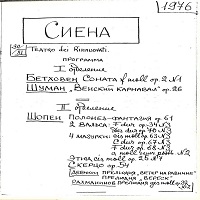 1976
СИЕНА
30/XI Teatro dei Rinnovati.
ПРОГРАММА
I отделение
БЕТХОВЕН СОНАТА f moll op. 2 N1
ШУМАН „ВЕНСКИЙ КАРНАВАЛ" op. 26
II отделение
ШОПЕН ПОЛОНЕЗ-ФАНТАЗИЯ op. 61
2 ВАЛЬСА: F dur op. 34 N3
des dur op. 70 N3
4 МАЗУРКИ: cis moll op. 63 N3
C dur op. 67 N3
F dur op. 68 N3
a moll
ЭТЮД cis moll op. 25 N7
СКЕРЦО op. 54
ДЕБЮССИ ПРЕЛЮДИЯ „ВЕТЕР НА РАВНИНЕ"
ПРЕЛЮДИЯ „ВЕРЕСК"
РАХМАНИНОВ ПРЕЛЮДИЯ gis moll op. 32